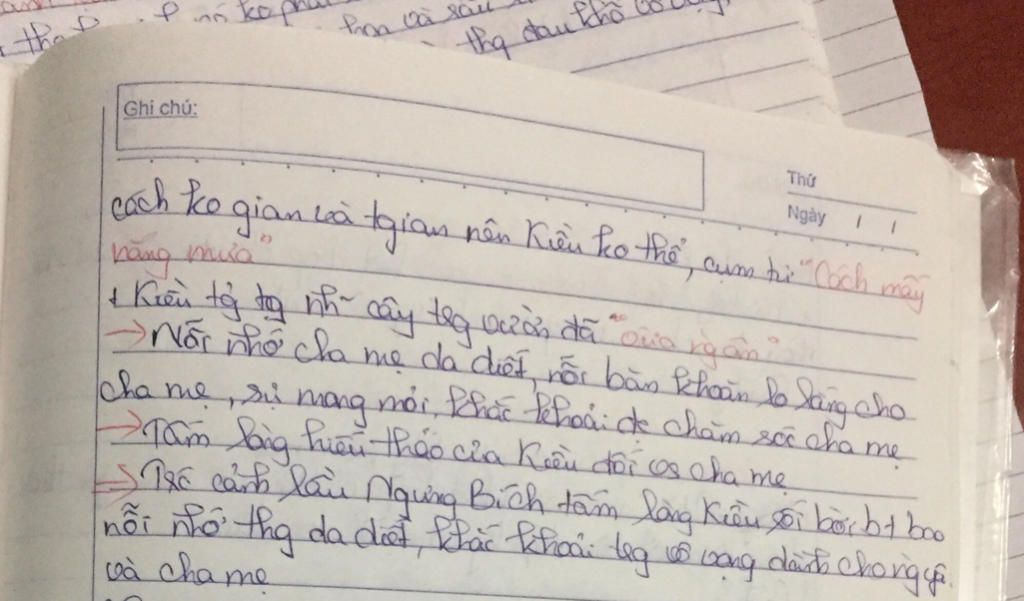 nó ko phải
hoa và sâu
thg đau khổ vô vọng
Ghi chú:
Thứ
Ngày / /
cách ko gian và tgian nên Kiều ko thể, cụm từ "Cách mấy
nắng mưa"
+ Kiều tg tg như cây trg vườn đã "vừa người ôm"
→ Nỗi nhớ cha mẹ da diết, nỗi băn khoăn lo lắng cho
cha mẹ, sự mong mỏi, khắc khoải đc chăm sóc cha mẹ
→ Tấm lòng hiếu thảo của Kiều đối vs cha mẹ
→ Trc cảnh lầu Ngưng Bích tấm lòng Kiều rối bời bt bao
nỗi nhớ thg da diết, khắc khoải trg vô vọng dành cho ng
và cha mẹ